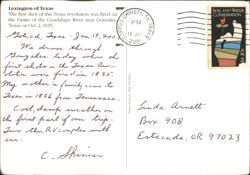 Lexington of Texas
The first shot of the Texas revolution was fired on
the banks of the Guadalupe River near Gonzales
Texas on Oct. 2, 1835.
Goliad, Tex. Jan. 17, 2001
We drove through
Gonzales today where the
first shot in the Texas Rev-
olution was fired in 1835.
My mother's family came to
Texas in 1836 from Tennessee.
Cool, damp weather on
the first part of our trip.
Two other RV couples with
us.
C. Skinner
CORPUS CHRISTI, TX
PM
18 JAN
2001
SOIL AND WATER
CONSERVATION
Linda Arnett
Box 908
Estacada, OR 97023